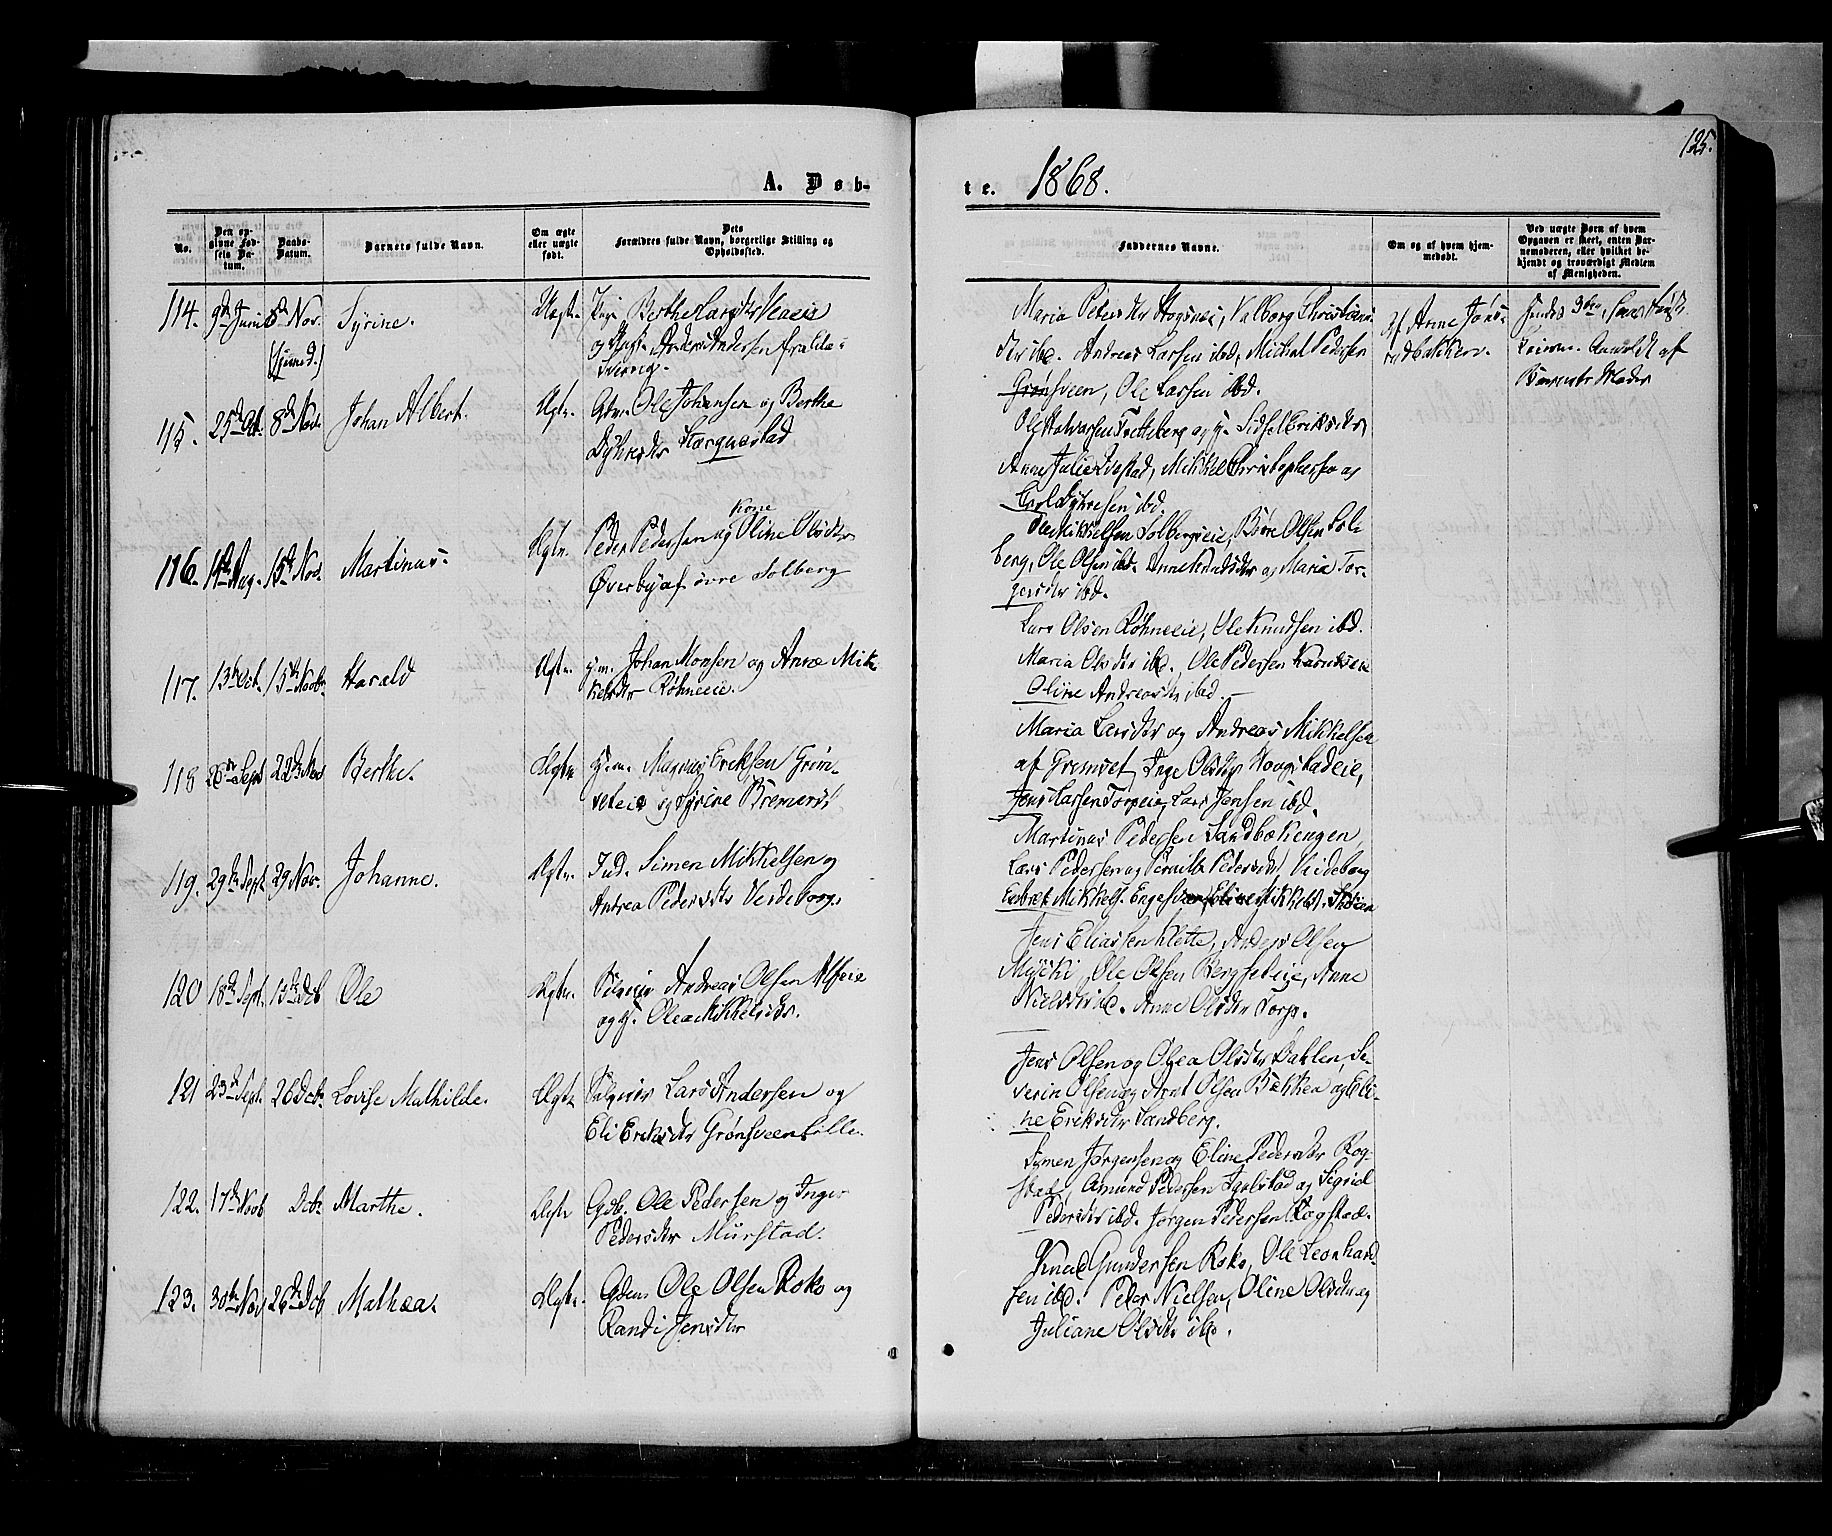 125.
A. Døb-
te. 1868.
No.
Den op-
givne Fød-
sels Da-
tum.
Daabs-
Datum.
Barnets fulde Navn.
Om ægte
eller uægte
født.
Dets
Forældres fulde Navn, borgerlige Stilling og
Opholdssted.
Faddernes Navne.
Om og af hvem hjem-
medøbt.
Ved uægte Børn af hvem
Opgaven er skeet, enten Bar-
nemoderen, eller hvilket be-
kjendt og troværdigt Medlem
af Menigheden.
114. 9de Juni 8de Nov. Syrine. Uægte.
(hjemd.)
Pige Berthe Larsdtr
og Andersen
Maria Pedersdtr Valborg Christians-
dtr ibd. Andreas Larsen ibd, Michal Pedersen
Grønsveen, Ole Larsen ibd.
Af Anne Jøns-
rudbakken.
Hendes 3die
Anmeldt af
Barnets Moder
115. 25de Oct. 8de Nov. Johan Albert. Ægte.
Gbr. Ole Johansen og Berthe
Dyhresdtr Harquestad
Ole Halvorsen og Sidsel Eriksdtr,
Anne Julie Mikkel Christophersen og
ibd.
116. 14de Aug. 15de Nov. Martinus. Ægte.
Peder Pedersen og Kone Oline Olsdtr
Øverby af øvre Solberg
Ole Mikkelsen Solbergseie, Børe Olsen Sol-
berg, Ole Olsen ibd. Anne Knudsdtr og Maria Tor-
gersdtr ibd.
117. 13de Oct. 15de Novbr. Harald Ægte.
gm. Johan Monsen og Anne Mik-
kelsdtr Røhneeie.
Lars Olsen Røhneeie, Ole Knudsen ibd.
Maria Olsdtr ibd. Ole Pedersen
Oline Andreasdtr ibd.
118 26de Sept 22de Nov Berthe. Ægte
gm. Magnus Eriksen Grim-
seteie og Syrine Bremersd
Maria Larsdtr og Andreas Mikkelsen
af Grimset, Inge Olsdtr Haagstadeie,
Jens Larsen Torpeie, Lars Jensen ibd.
119. 29de Sept 29 Nov. Johanne. Ægte.
Ind. Simen Mikkelsen og
Andrea Pedersdtr Veideborg.
Martinus Pedersen Sandbækengen,
Lars Pedersen og Pernille Pedersdt, Veideborg
Engebret Mikkels. Eline Mikkelsd.
120 18de Sept. 13de Dcb Ole Ægte.
Andreas Olsen
og H. Olea Mikkelsdtr.
Jens Eliassen Klette, Anders Olsen
Ole Olsen Bergseteie, Anne
Nielsdtr ibd. Anne Olsdtr Torp.
121 23de Sept. 26 Dcbr. Lovise Mathilde. Ægte
Lars Andersen og
Eli Eriksdtr Grønsveen lille.
Jens Olsen og Olea Olsdtr Dahlen, Se-
verin Olsen og Arnt Olsen Bekken og Eli-
ne Eriksdtr Sandberg.
122. 17de Novb Dcbr Marthe. Ægte
Gdb. Ole Pedersen og Inger
Pedersdtr Murstad.
Simen Jørgensen og Eline Pedersdtr Rog-
stad, Amund Pedersen og Sigrid
Pedersdtr ibd. Jørgen Pedersen Rogstad.
123. 30te Nov 26de Dcb Mathea. Ægte.
Gdm. Ole Olsen Roko og
Randi Jensdtr
Knud Gundersen Roko, Ole Leonhard-
sen ibd. Peder Nielsen, Oline Olsdtr og
Juliane Olsdtr ibd.